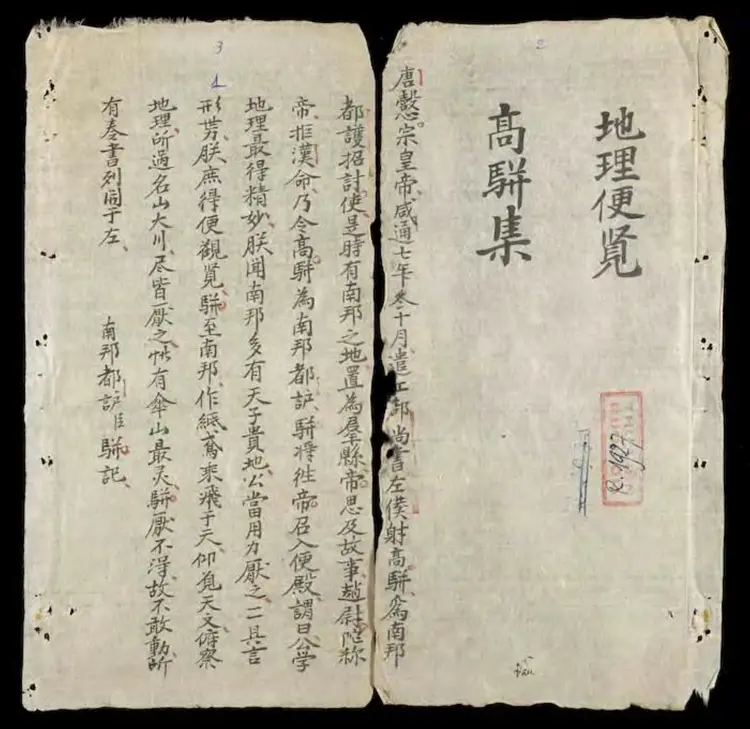 2
地理便覧
高駢集
R.1927
唐懿宗皇帝、咸通七年叁十月、遣工部尚書左僕射高駢、為南邦
都護招討使、是時有南邦之地、置為郡縣、帝思及故事、趙尉陀称
帝、拒漢命、乃令高駢為南邦都护、駢將徃、帝召入便殿、謂曰、公学
地理最得精妙、朕聞南邦多有天子貴地、公當用力厭之、一一具言
形势、朕庶得便觀覧、駢至南邦、作紙鳶乘飛于天、仰覓天文、俯察
地理、所過名山大川、尽皆厭之、惟有傘山最灵、駢厭不得、故不敢動、所
有奏書列同于左、
南邦都护臣駢記、
3
1